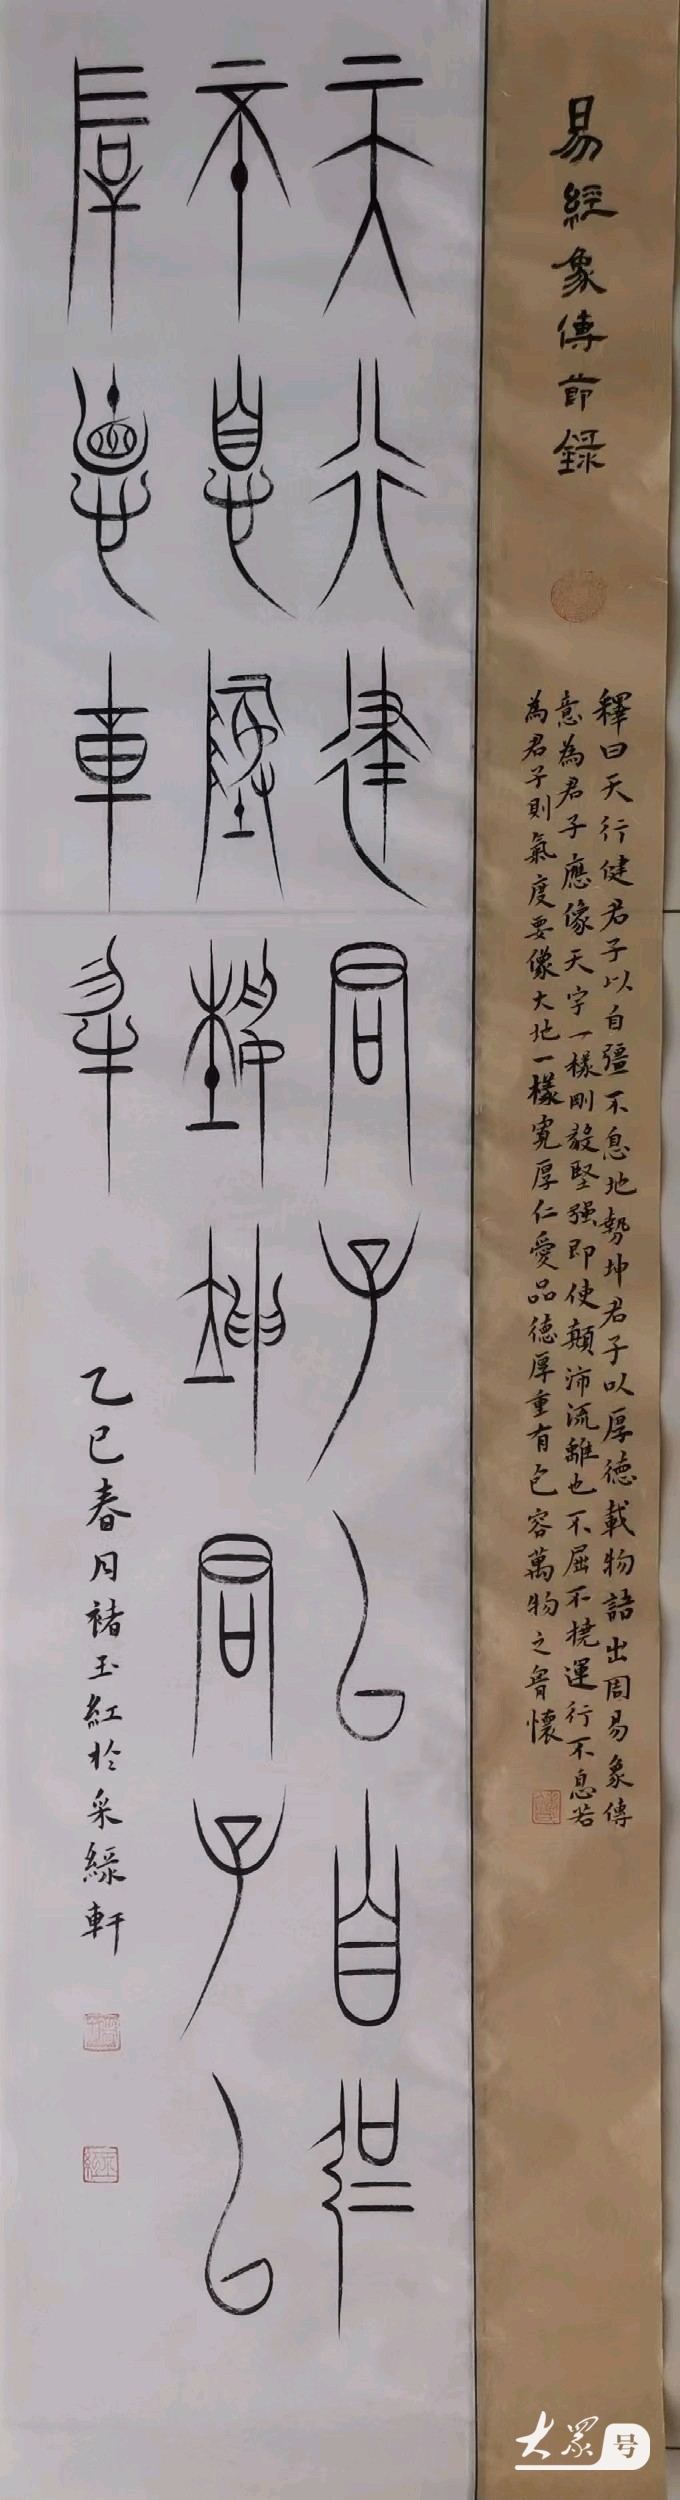 易經象傳節錄
釋曰天行健君子以自彊不息地勢坤君子以厚德載物語出周易象傳
意為君子應像天宇一樣剛毅堅強即使顛沛流離也不屈不撓運行不息若
為君子則氣度要像大地一樣寬厚仁愛品德厚重有包容萬物之胷懷
天行健君子以自彊
不息地勢坤君子以
厚德載物
乙巳春月褚玉紅於采綠軒
大眾号